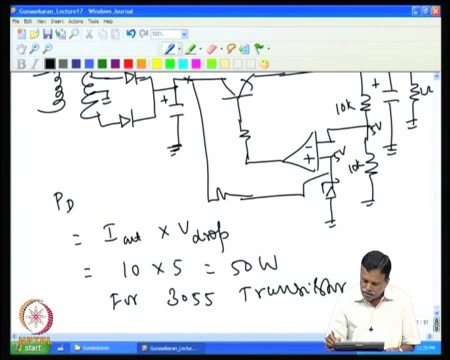 Gunasekaran_Lecture17 - Windows Journal
File Edit View Insert Actions Tools Help
100%
B I
+
+
10k
1Ω
5V
5V
-
+
10k
P_D
= I_out × V_drop
= 10 × 5 = 50W
For 3055 Transistor
NPTEL
start
Gunasekaran
Gunasekaran_Lectur...